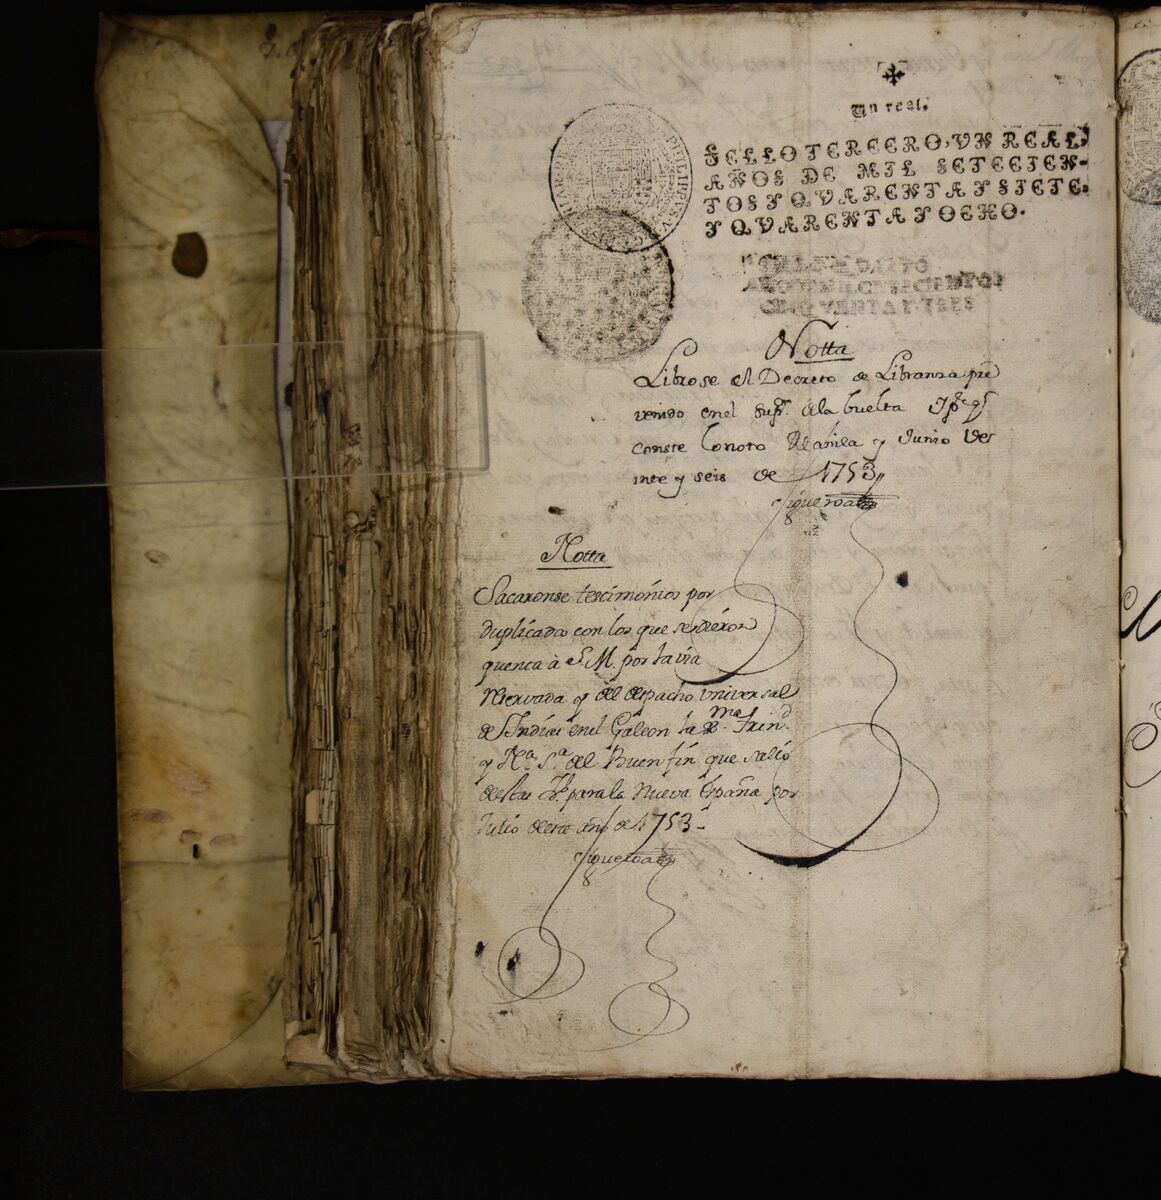 Un real.
SELLO TERCERO, VN REAL,
AÑOS DE MIL SETECIEN-
TOS Y QVARENTA Y SIETE,
Y QVARENTA Y OCHO.
PHILIPPVS V
AÑO DE MIL SETECIENTOS
CINQVENTA Y TRES
Notta
Librose el Decreto de Libranza pre
venido en el dela buelta
conste lo noto Manila y Junio Ve
inte y seis de 1753
Figueroa
Notta
Sacaronse testimonios por
duplicado con los que se dieron
quenta à S. M. por la via
Reservada y del despacho universal
de Indias en el Galeon la Sma Trind
y Na. Sa. del Buen fin que salió
destas Ys. para la Nueva España por
Julio deste año de 1753-
Figueroa